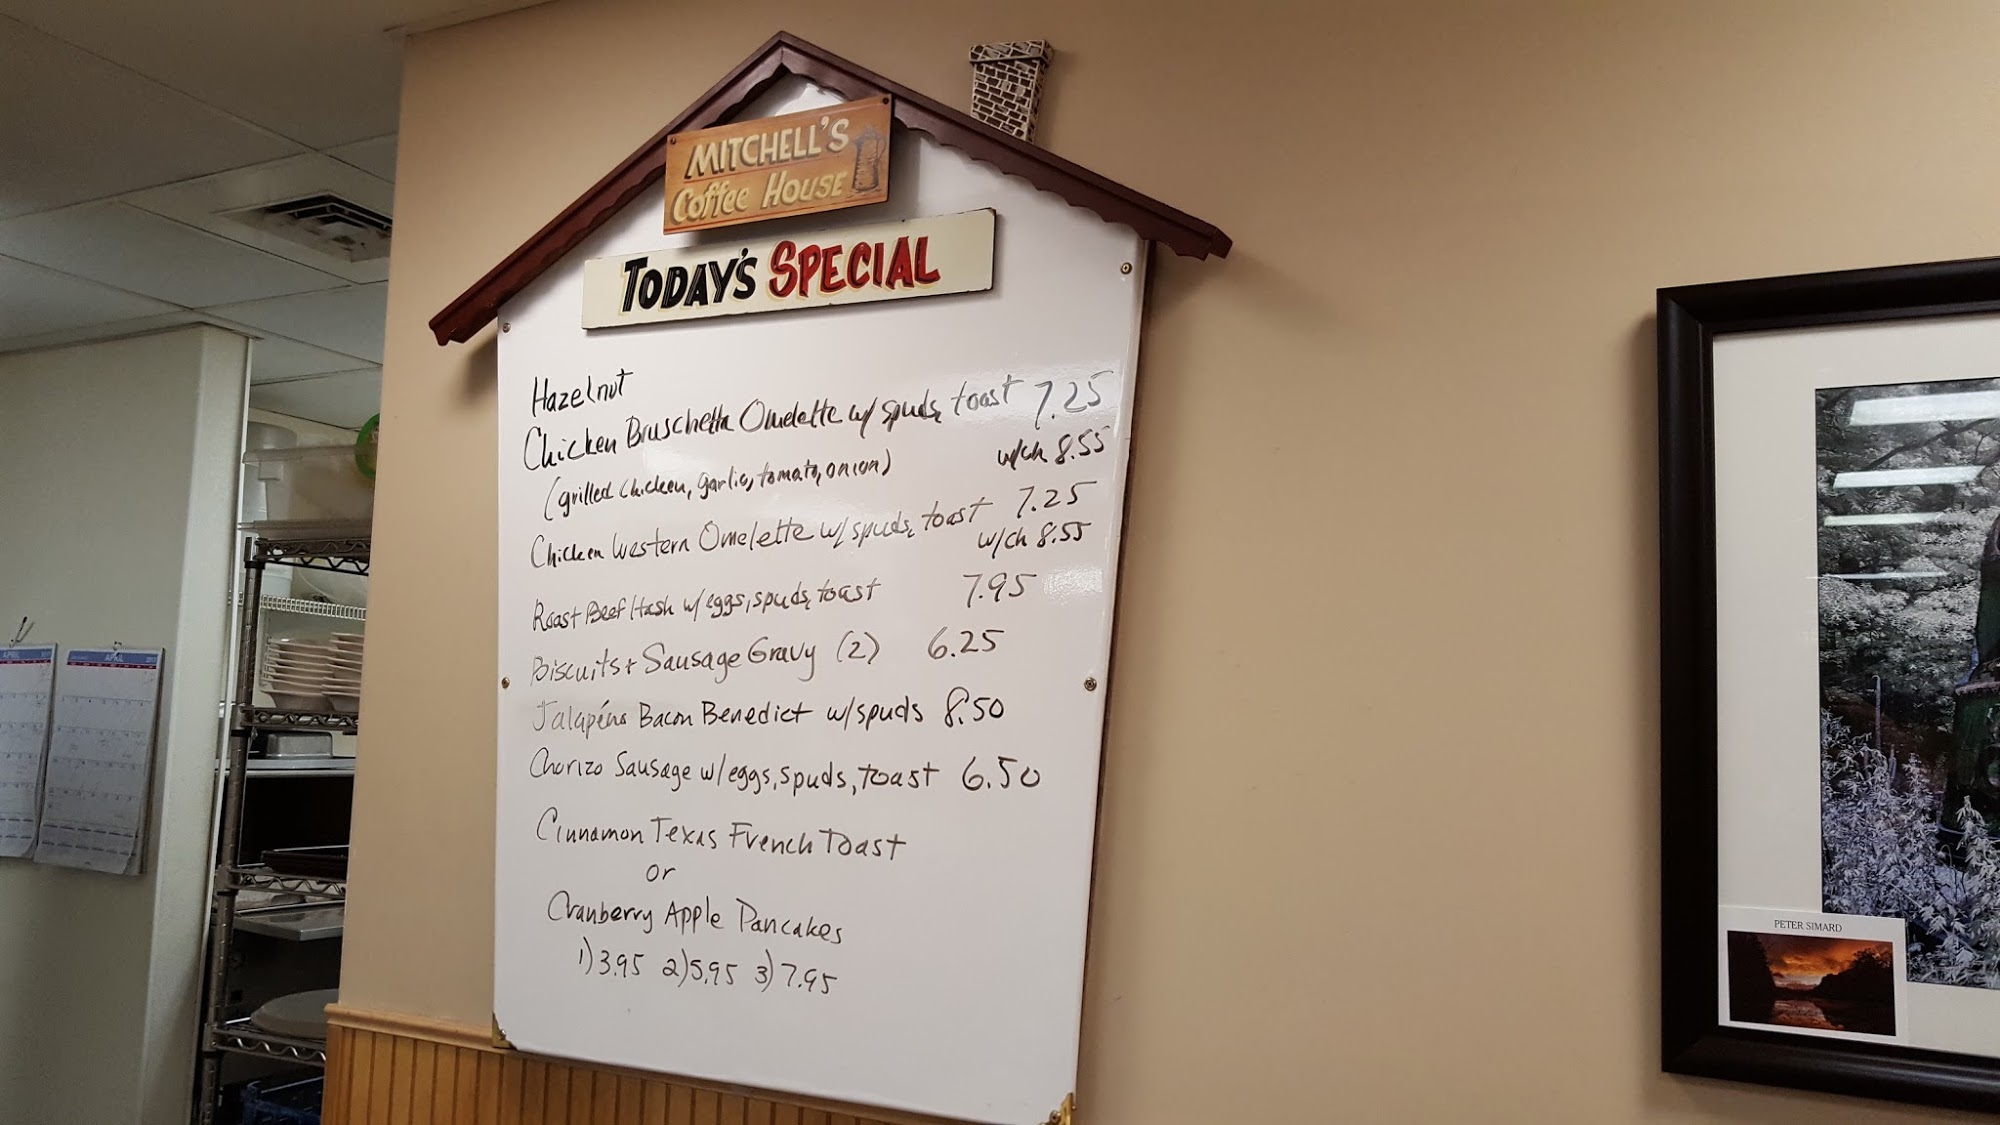 MITCHELL'S
Coffee HOUSE
TODAY'S SPECIAL
Hazelnut
Chicken Bruschetta Omelette w/ spuds, toast 7.25
(grilled chicken, garlic, tomato, onion) w/ch 8.55
Chicken Western Omelette w/ spuds, toast 7.25
w/ch 8.55
Roast Beef Hash w/ eggs, spuds, toast 7.95
Biscuits + Sausage Gravy (2) 6.25
Jalapéno Bacon Benedict w/spuds 8.50
Chorizo Sausage w/eggs, spuds, toast 6.50
Cinnamon Texas French Toast
or
Cranberry Apple Pancakes
1) 3.95 2) 5.95 3) 7.95
APRIL
APRIL
PETER SIMARD